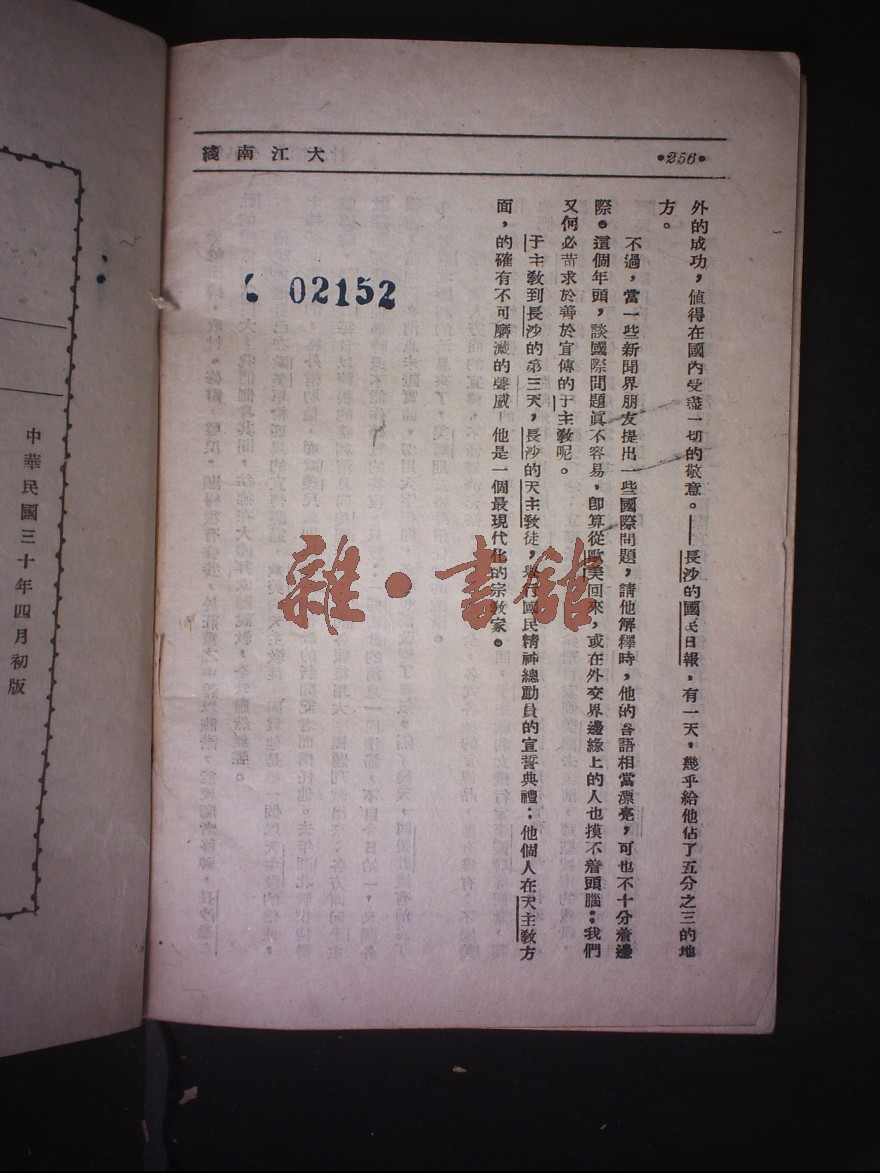 大江南綫
•256•
外的成功，值得在國內受盡一切的敬意。長沙的國民日報，有一天，幾乎給他佔了五分之三的地
方。
不過，當一些新聞界朋友提出一些國際問題，請他解釋時，他的各語相當漂亮，可也不十分着邊
際。這個年頭，談國際問題眞不容易，卽算從歐美回來，或在外交界邊緣上的人也摸不着頭腦；我們
又何必苛求於善於宣傳的于主敎呢。
于主敎到長沙的第三天，長沙的天主敎徒，舉行國民精神總動員的宣誓典禮；他個人在天主敎方
面，的確有不可磨滅的聲威！他是一個最現代化的宗敎家。
02152
雜·書館
中華民國三十年四月初版